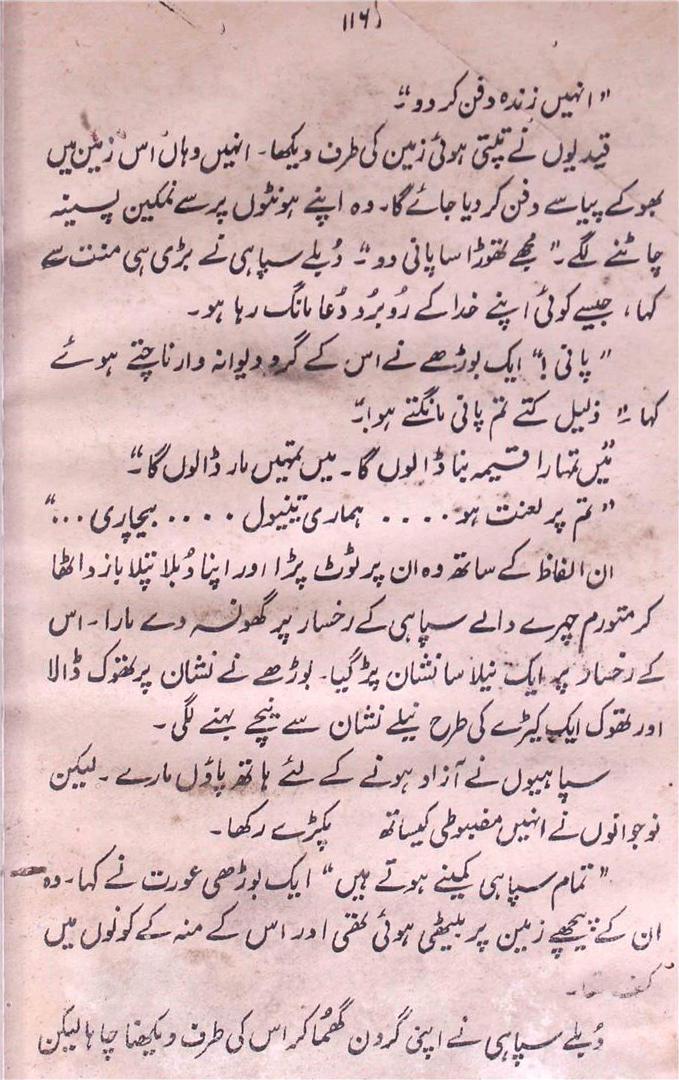 ۱۱۶
"انہیں زندہ دفن کر دو"۔
قیدیوں نے تپتی ہوئی زمین کی طرف دیکھا۔ انہیں وہاں اس زمین میں
بھوکے پیاسے دفن کر دیا جائے گا۔ وہ اپنے ہونٹوں پر سے نمکین پسینہ
چاٹنے لگے۔ "مجھے تھوڑا سا پانی دو"۔ دُبلے سپاہی نے بڑی ہی منت سے
کہا، جیسے کوئی اپنے خدا کے رُوبرُو دُعا مانگ رہا ہو۔
"پانی!" ایک بوڑھے نے اس کے گرد دیوانہ وار ناچتے ہوئے
کہا۔" ذلیل کتے تم پانی مانگتے ہو!"۔
"میں تمہارا قیمہ بنا ڈالوں گا۔ میں تمہیں مار ڈالوں گا"۔
"تم پر لعنت ہو .... ہماری تینیول .... بیچاری ..."
ان الفاظ کے ساتھ وہ ان پر ٹوٹ پڑا اور اپنا دُبلا پتلا بازو اٹھا
کر متورم چہرے والے سپاہی کے رخسار پر گھونسہ دے مارا۔ اس
کے رخسار پر ایک نیلا سا نشان پڑ گیا۔ بوڑھے نے نشان پر تھوک ڈالا
اور تھوک ایک کیڑے کی طرح نیلے نشان سے نیچے بہنے لگی۔
سپاہیوں نے آزاد ہونے کے لئے ہاتھ پاؤں مارے۔ لیکن
نوجوانوں نے انہیں مضبوطی کیساتھ پکڑے رکھا۔
"تمام سپاہی کمینے ہوتے ہیں" ایک بوڑھی عورت نے کہا۔ وہ
ان کے پیچھے زمین پر بیٹھی ہوئی تھی اور اس کے منہ کے کونوں میں
کف تھا۔
دُبلے سپاہی نے اپنی گردن گھما کر اس کی طرف دیکھنا چاہا لیکن